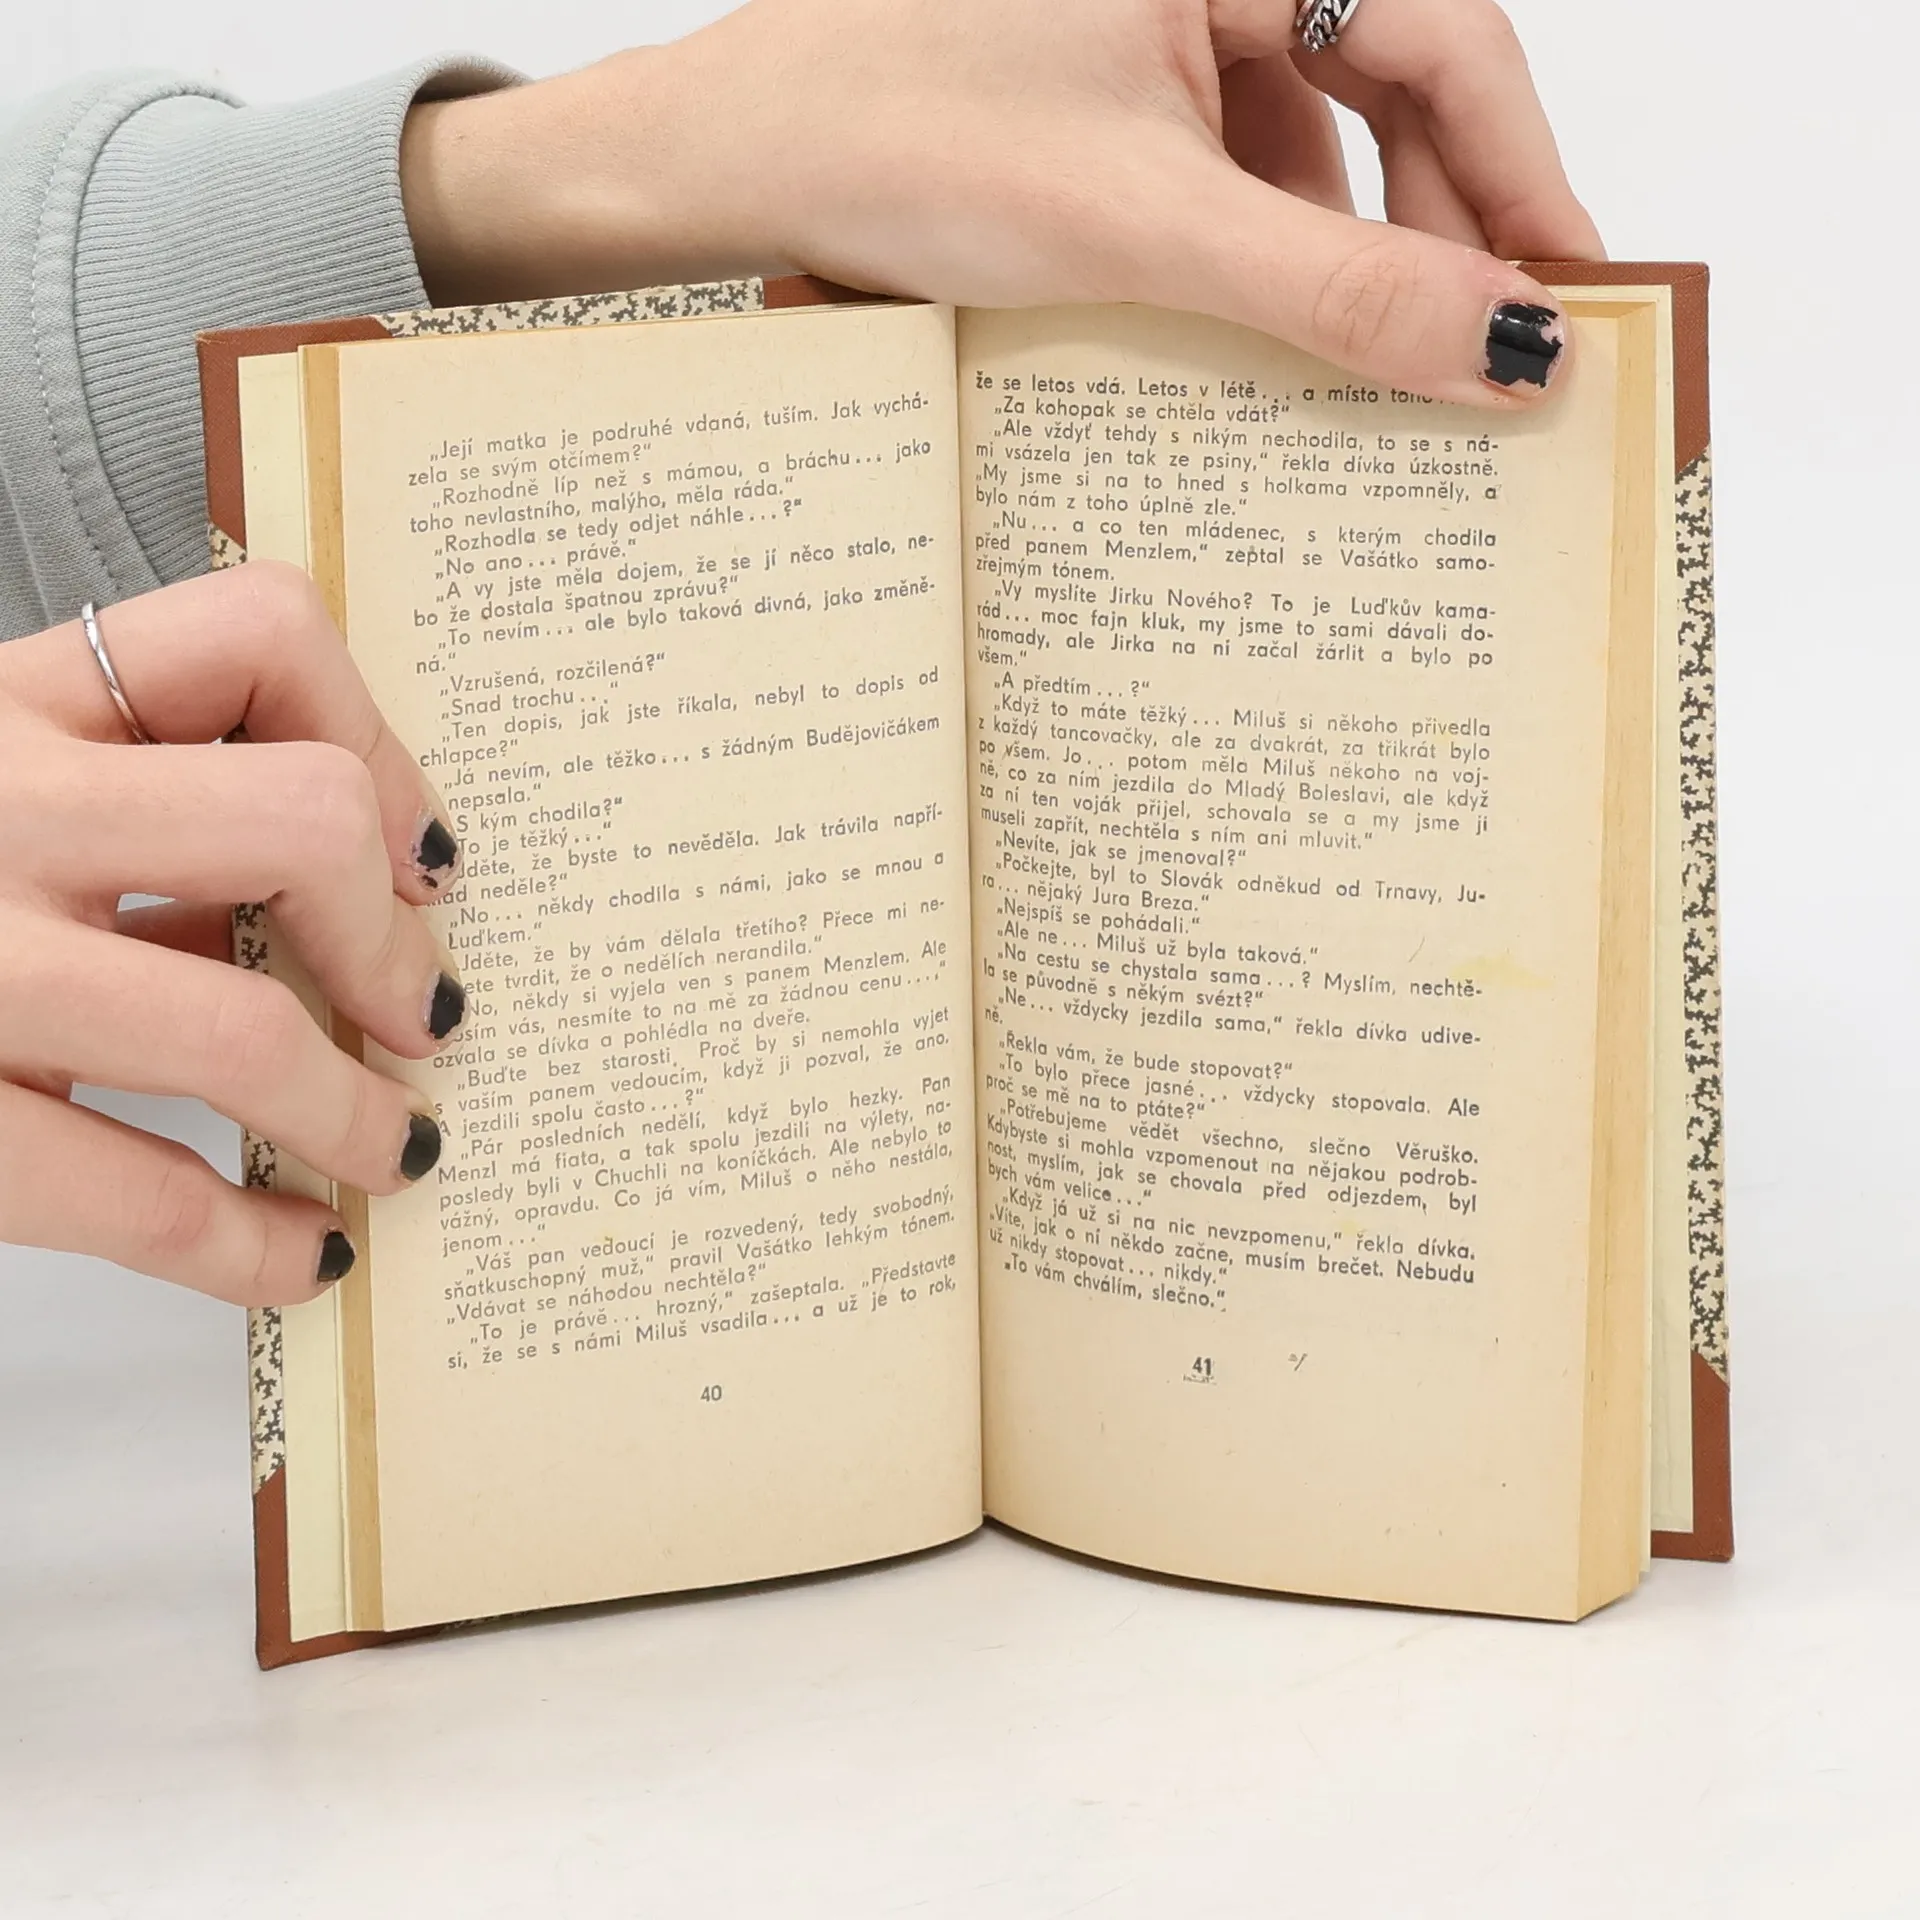 „Její matka je podruhé vdaná, tuším. Jak vychá-
zela se svým otčímem?“
„Rozhodně líp než s mámou, a bráchu... jako
toho nevlastního, malýho, měla ráda.“
„Rozhodla se tedy odjet náhle...?“
„No ano... právě.“
„A vy jste měla dojem, že se jí něco stalo, ne-
bo že dostala špatnou zprávu?“
„To nevím... ale bylo taková divná, jako změně-
ná.“
„Vzrušená, rozčilená?“
„Snad trochu...“
„Ten dopis, jak jste říkala, nebyl to dopis od
chlapce?“
„Já nevím, ale těžko... s žádným Budějovičákem
nepsala.“
S kým chodila?“
To je těžký...“
děte, že byste to nevěděla. Jak trávila napří-
ad neděle?“
„No... někdy chodila s námi, jako se mnou a
Luďkem.“
Jděte, že by vám dělala třetího? Přece mi ne-
ete tvrdit, že o nedělích nerandila.“
No, někdy si vyjela ven s panem Menzlem. Ale
osím vás, nesmíte to na mě za žádnou cenu...,“
ozvala se dívka a pohlédla na dveře.
„Buďte bez starosti. Proč by si nemohla vyjet
s vaším panem vedoucím, když ji pozval, že ano.
A jezdili spolu často...?“
„Pár posledních nedělí, když bylo hezky. Pan
Menzl má fiata, a tak spolu jezdili na výlety, na-
posledy byli v Chuchli na koníčkách. Ale nebylo to
vážný, opravdu. Co já vím, Miluš o něho nestála,
jenom...“
„Váš pan vedoucí je rozvedený, tedy svobodný,
sňatkuschopný muž,“ pravil Vašátko lehkým tónem.
„Vdávat se náhodou nechtěla?“
„To je právě... hrozný,“ zašeptala. „Představte
si, že se s námi Miluš vsadila... a už je to rok,
40
že se letos vdá. Letos v létě... a místo toho...
„Za kohopak se chtěla vdát?“
„Ale vždyť tehdy s nikým nechodila, to se s ná-
mi vsázela jen tak ze psiny,“ řekla dívka úzkostně.
„My jsme si na to hned s holkama vzpomněly, a
bylo nám z toho úplně zle.“
„Nu... a co ten mládenec, s kterým chodila
před panem Menzlem,“ zeptal se Vašátko samo-
zřejmým tónem.
„Vy myslíte Jirku Nového? To je Luďkův kama-
rád... moc fajn kluk, my jsme to sami dávali do-
hromady, ale Jirka na ní začal žárlit a bylo po
všem.“
„A předtím...?“
„Když to máte těžký... Miluš si někoho přivedla
z každý tancovačky, ale za dvakrát, za třikrát bylo
po všem. Jo... potom měla Miluš někoho na voj-
ně, co za ním jezdila do Mladý Boleslavi, ale když
za ní ten voják přijel, schovala se a my jsme ji
museli zapřít, nechtěla s ním ani mluvit.“
„Nevíte, jak se jmenoval?“
„Počkejte, byl to Slovák odněkud od Trnavy, Ju-
ra... nějaký Jura Breza.“
„Nejspíš se pohádali.“
„Ale ne... Miluš už byla taková.“
„Na cestu se chystala sama...? Myslím, nechtě-
la se původně s někým svézt?“
„Ne... vždycky jezdila sama,“ řekla dívka udive-
ně.
„Řekla vám, že bude stopovat?“
„To bylo přece jasné... vždycky stopovala. Ale
proč se mě na to ptáte?“
„Potřebujeme vědět všechno, slečno Věruško.
Kdybyste si mohla vzpomenout na nějakou podrob-
nost, myslím, jak se chovala před odjezdem, byl
bych vám velice...“
„Když já už si na nic nevzpomenu,“ řekla dívka.
„Víte, jak o ní někdo začne, musím brečet. Nebudu
už nikdy stopovat... nikdy.“
„To vám chválím, slečno.“
41